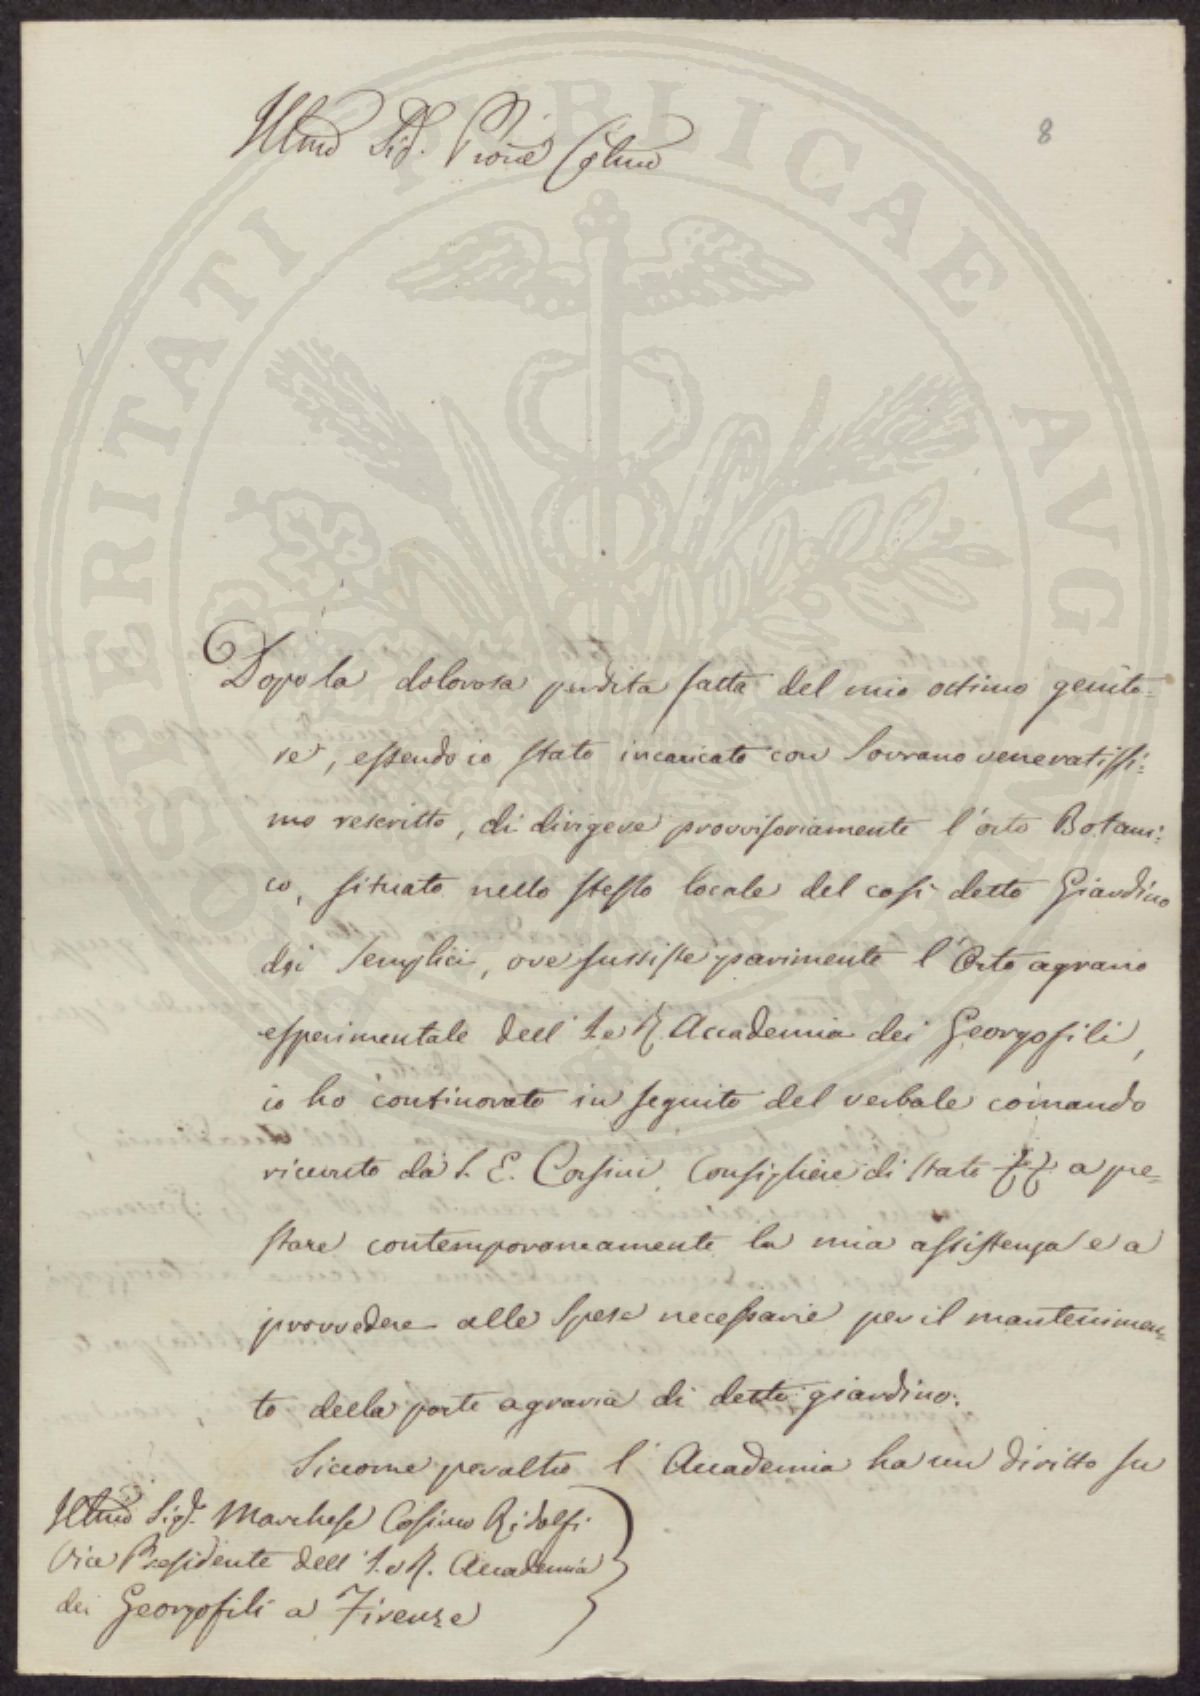 8
Illmo Sig. Prone Colmo
Dopo la dolorosa perdita fatta del mio ottimo genito-
re, essendo io stato incaricato con Sovrano veneratissi-
mo rescritto, di dirigere provvisoriamente l'orto Botani-
co, situato nello stesso locale del così detto Giardino
dei Semplici, ove sussiste parimente l'Orto agrario
esperimentale dell' I. e R. Accademia dei Georgofili,
io ho continovato in seguito del verbale comando
ricevuto da S. E. Corsini Consigliere di Stato a pre-
stare contemporaneamente la mia assistenza e a
provvedere alle spese necessarie per il mantenimen-
to della parte agraria di detto giardino.
Siccome peraltro l'Accademia ha un diritto su
Illmo Sig. Marchese Cosimo Ridolfi
Vice Presidente dell' I. e R. Accademia
dei Georgofili a Firenze
PROSPERITATI PUBLICAE AUGENDAE